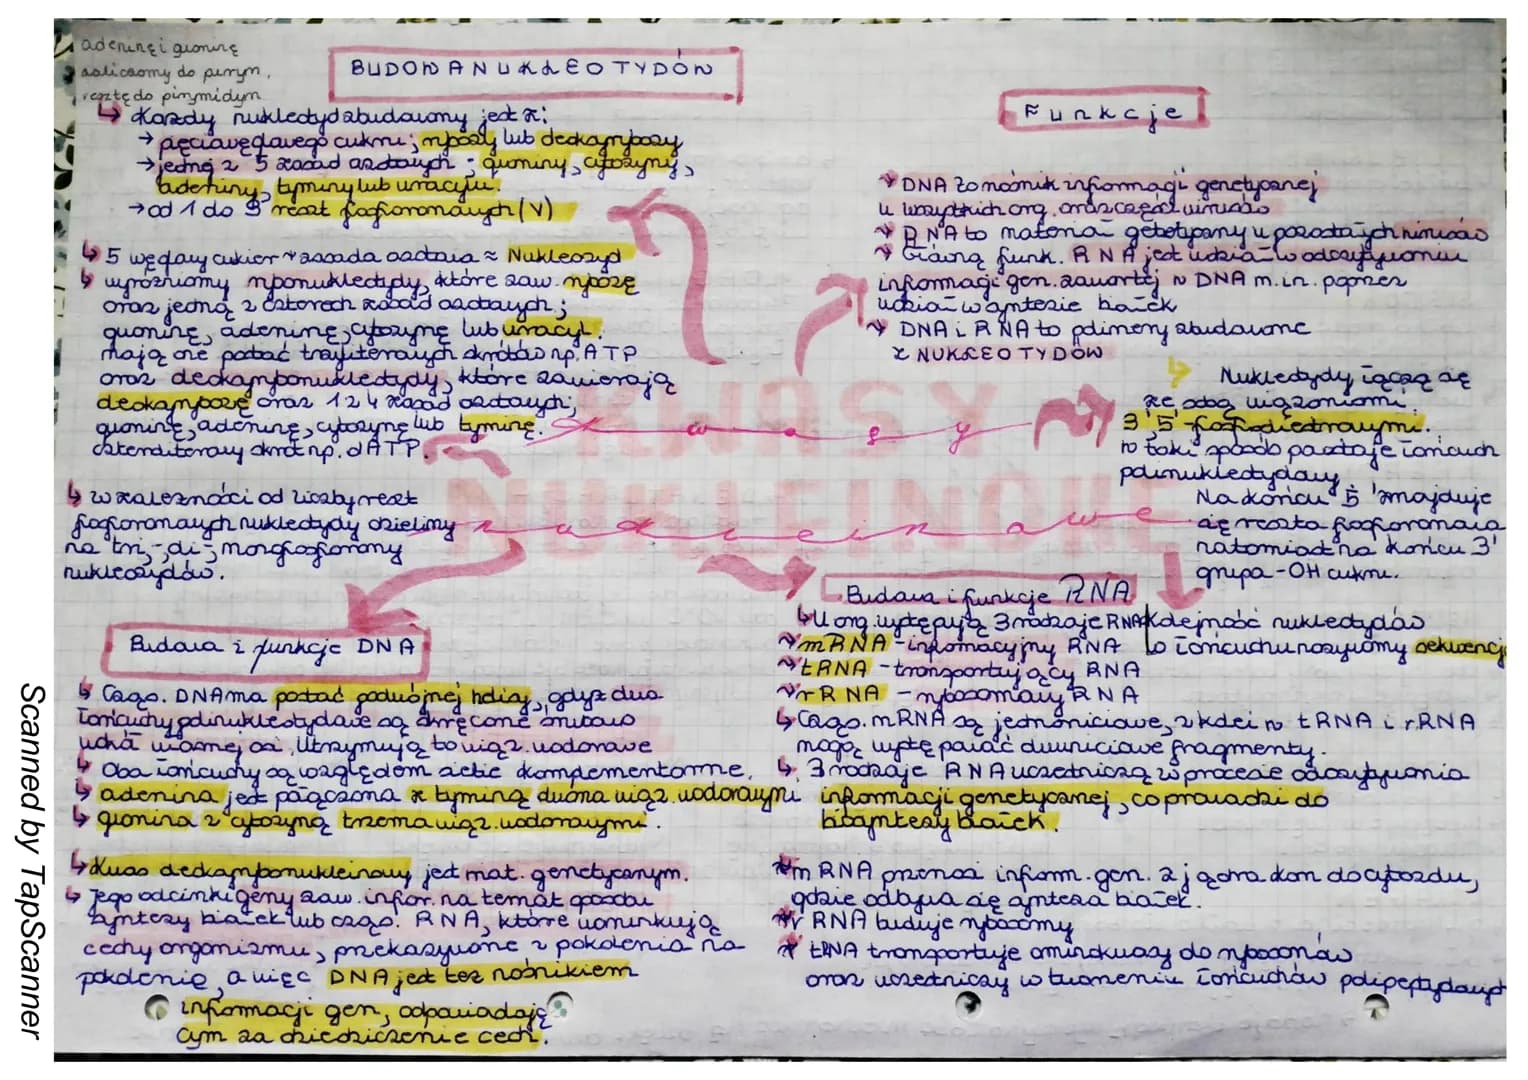 adeninę i guaninę
zaliczamy do puryn,
resztę do pirymidyn
BUDOWA NUKLEOTYDÓW
↳ Każdy nukleotyd zbudowany jest z:
→ pięciowęglowego cukru; rybozy lub deoksyrybozy
→ jednej z 5 zasad azotowych; guaniny, cytozyny,
adeniny, tyminy lub uracylu.
→ od 1 do 3 reszt fosforanowych (V)
↳ 5 węglowy cukier + zasada azotowa = Nukleozyd
↳ wyróżniamy rybonukleotydy, które zaw. rybozę
oraz jedną z czterech zasad azotowych;
guaninę, adeninę, cytozynę lub uracyl.
mają one postać trzyliterowych skrótów np. ATP
oraz deoksyrybonukleotydy, które zawierają
deoksyrybozę oraz 1 z 4 zasad azotowych;
guaninę, adeninę, cytozynę lub tyminę.
czteroliterowy skrót np. dATP.
↳ w zależności od liczby reszt
fosforanowych nukleotydy dzielimy
na tri-, di-, monofosforany
nukleozydów.
Funkcje
DNA to nośnik informacji genetycznej
u wszystkich org. oraz części wirusów
RNA to materiał genetyczny u pozostałych wirusów
Główną funk. RNA jest udział w odczytywaniu
informacji gen. zawartej w DNA m.in. poprzez
udział w syntezie białek
DNA i RNA to polimery zbudowane
z NUKLEOTYDÓW
Nukleotydy łączą się
ze sobą wiązaniami
3' 5'-fosfodiestrowymi.
w taki sposób powstaje łańcuch
polinukleotydowy
Na końcu 5' znajduje
się reszta fosforanowa
natomiast na końcu 3'
grupa -OH cukru.
Kolejność nukleotydów
w łańcuchu nazywamy sekwencj
KWASY
NUKLEINOWE
kwasy
nukleinowe
Budowa i funkcje DNA
↳ Cząs. DNA ma postać podwójnej helisy, gdyż dwa
łańcuchy polinukleotydowe są skręcone śrubowo
wokół własnej osi. Utrzymują to wiąz. wodorowe
↳ Oba łańcuchy są względem siebie komplementarne.
↳ adenina jest połączona z tyminą dwoma wiąz. wodorowymi
↳ guanina z cytozyną trzema wiąz. wodorowymi.
↳ Kwas deoksyrybonukleinowy jest mat. genetycznym.
↳ Jego odcinki geny zaw. infor. na temat sposobu
syntezy białek lub cząs. RNA, które warunkują
cechy organizmu, przekazywane z pokolenia na
pokolenie, a więc DNA jest też nośnikiem
informacji gen, odpowiadają
cym za dziedziczenie cech.
Budowa i funkcje RNA
↳ U org. występują 3 rodzaje RNA
mRNA - informacyjny RNA
tRNA - transportujący RNA
rRNA - rybosomowy RNA
↳ Cząs. mRNA są jednoniciowe, z kolei w tRNA i rRNA
mogą występować dwuniciowe fragmenty.
↳ 3 rodzaje RNA uczestniczą w procesie odczytywania
informacji genetycznej, co prowadzi do
biosyntezy białek.
mRNA przenosi inform. gen. z jądra kom do cytozolu,
gdzie odbywa się synteza białek.
rRNA buduje rybosomy
tRNA transportuje aminokwasy do rybosomów
oraz uczestniczy w tworzeniu łańcuchów polipeptydowych
Scanned by TapScanner